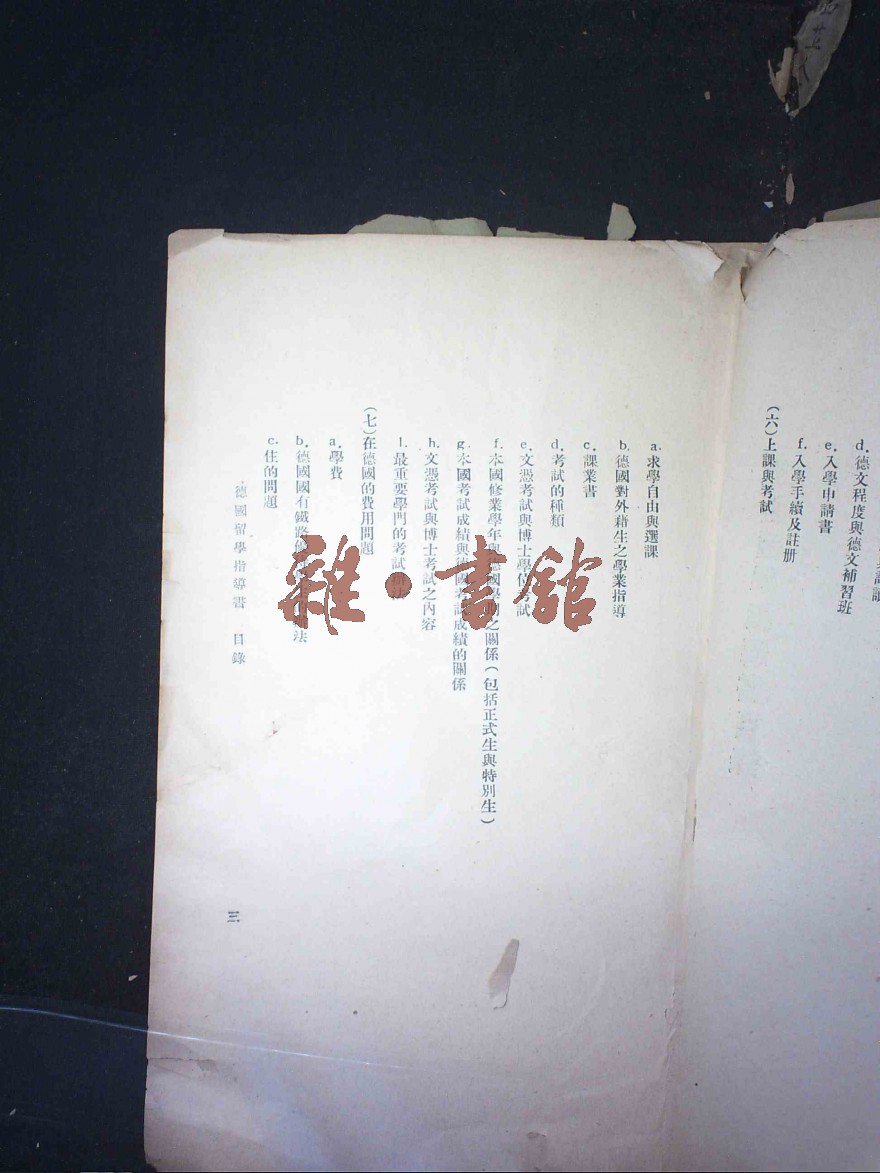 d. 德文程度與德文補習班
e. 入學申請書
f. 入學手續及註册
(六)上課與考試
a. 求學自由與選課
b. 德國對外籍生之學業指導
c. 課業書
d. 考試的種類
e. 文憑考試與博士學位考試
f. 本國修業學年與德國學制之關係(包括正式生與特別生)
g. 本國考試成績與德國考試成績的關係
h. 文憑考試與博士考試之內容
l. 最重要學門的考試辦法
(七)在德國的費用問題
a. 學費
b. 德國國有鐵路 法
c. 住的問題
德國留學指導書 目錄
三
雜·書館